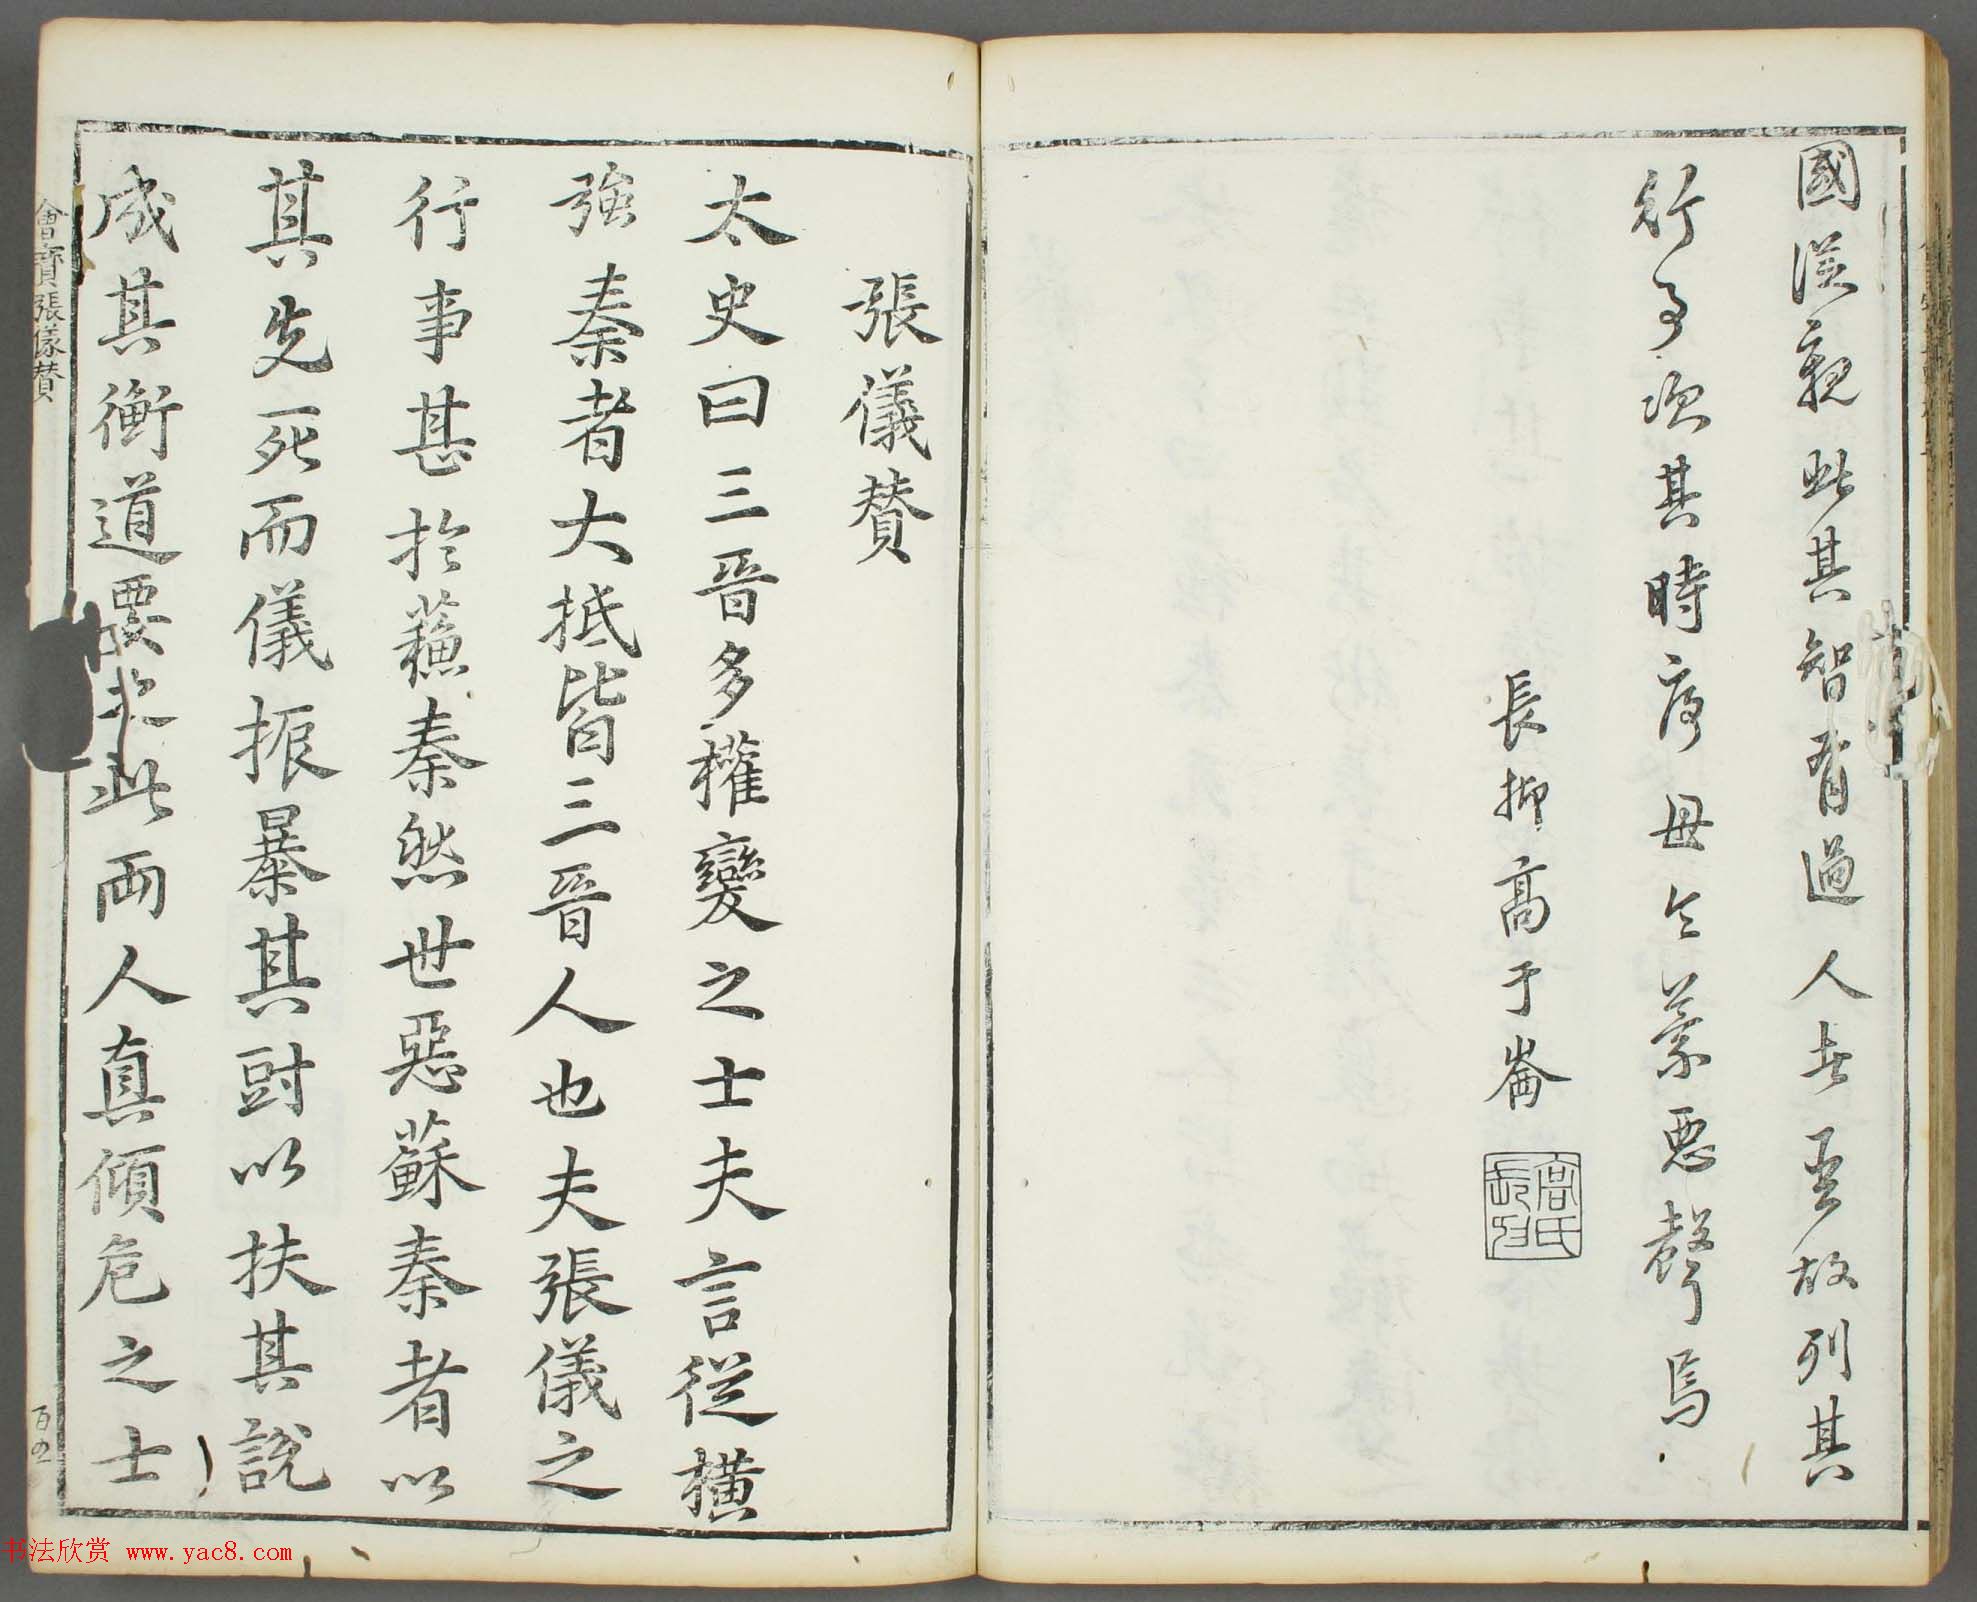 國從親此其智有過人者吾故列其
行事次其時序毋令蒙惡聲焉
長抑高于崙
張儀贊
太史曰三晉多權變之士夫言從橫
強秦者大抵皆三晉人也夫張儀之
行事甚於蘓秦然世惡蘇秦者以
其先死而儀振暴其尌以扶其說
成其衡道要之此兩人真傾危之士
張儀贊
百九
书法欣赏 www.yac8.com